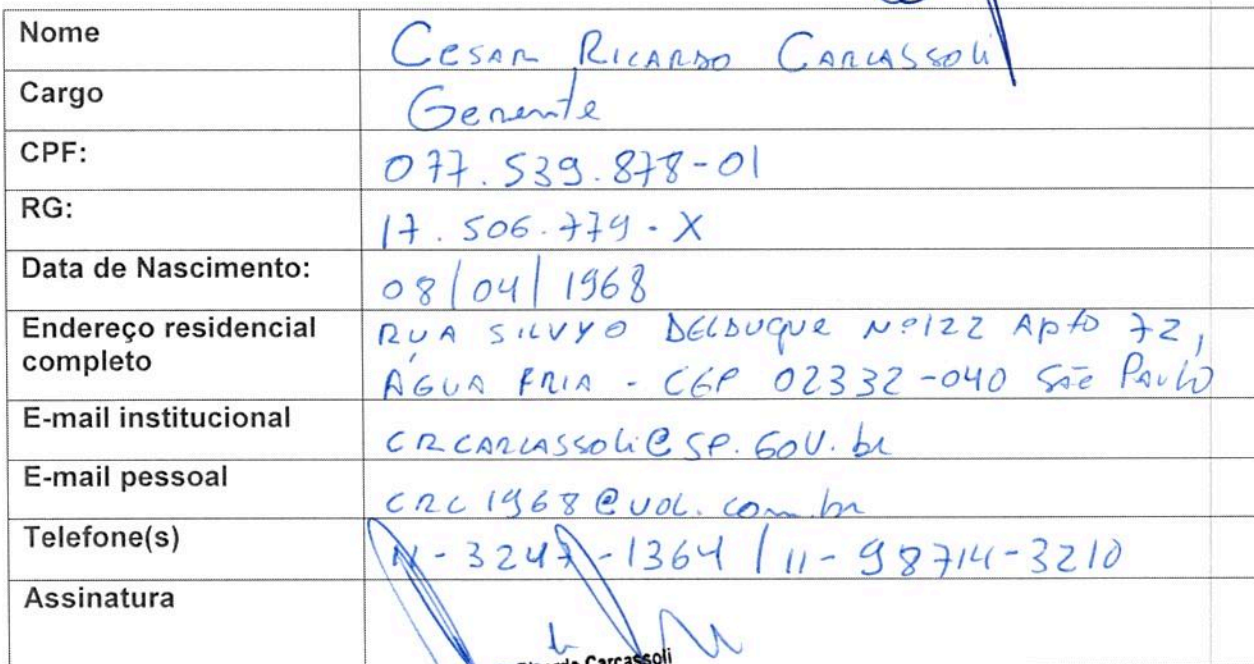 Nome CESAR RICARDO CARCASSOLI
Cargo Gerente
CPF: 077.539.878-01
RG: 17.506.779-X
Data de Nascimento: 08/04/1968
Endereço residencial RUA SILVYO DELDUQUE Nº122 Apto 72,
completo ÁGUA FRIA - CEP 02332-040 São Paulo
E-mail institucional CRCARCASSOLI@SP.GOV.br
E-mail pessoal CRC1968@UOL.com.br
Telefone(s) 11-3247-1364 / 11-98714-3210
Assinatura
Ricardo Carcassoli